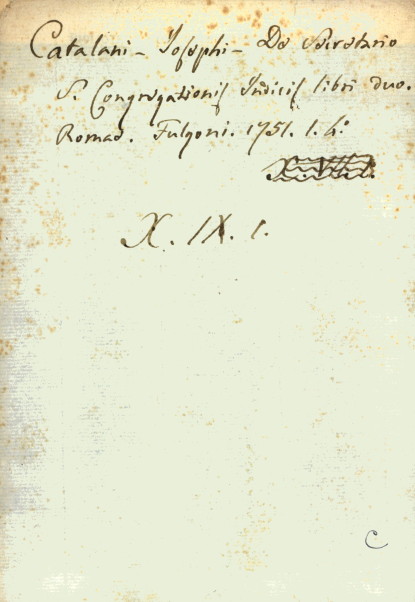 Catalani - Josephi - De Secretario
S. Congregationis Indicis libri duo.
Romae. Fulgoni. 1751. 1. 4.º
X. IX. 1.
C